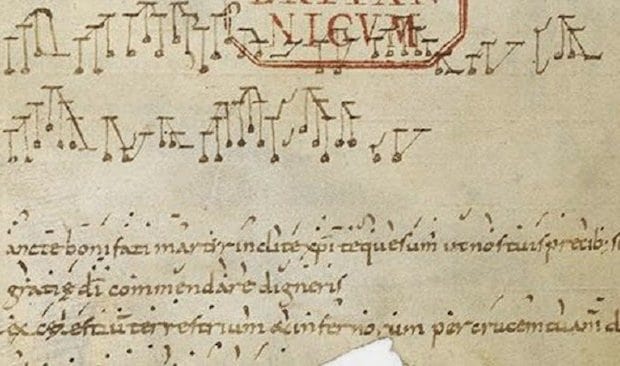 BRITAN
NICVM
ancte bonifati martir inclite xp̄i te quesum̄ ut nos tuis precib;
gratię dī commendare digneris
ex cęlestiū terrestrium & infernorum per crucem tuam